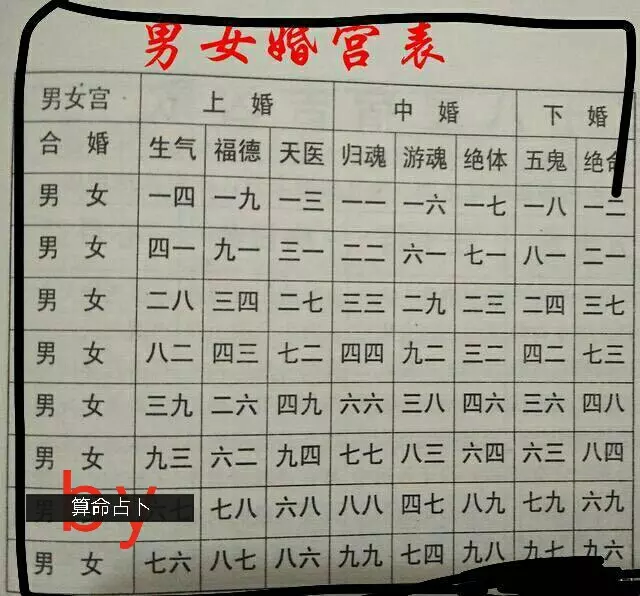 男女婚宫表
男女宫 上婚 中婚 下婚
合婚 生气 福德 天医 归魂 游魂 绝体 五鬼 绝命
男女 一四 一九 一三 一一 一六 一七 一八 一二
男女 四一 九一 三一 二二 六一 七一 八一 二一
男女 二八 三四 二七 三三 二九 二三 二四 三七
男女 八二 四三 七二 四四 九二 三二 四二 七三
男女 三九 二六 四九 六六 三八 四六 三六 四八
男女 九三 六二 九四 七七 八三 六四 六三 八四
男女 六七 七八 六八 八八 四七 八九 七九 六九
男女 七六 八七 八六 九九 七四 九八 九七 九六
by
算命占卜